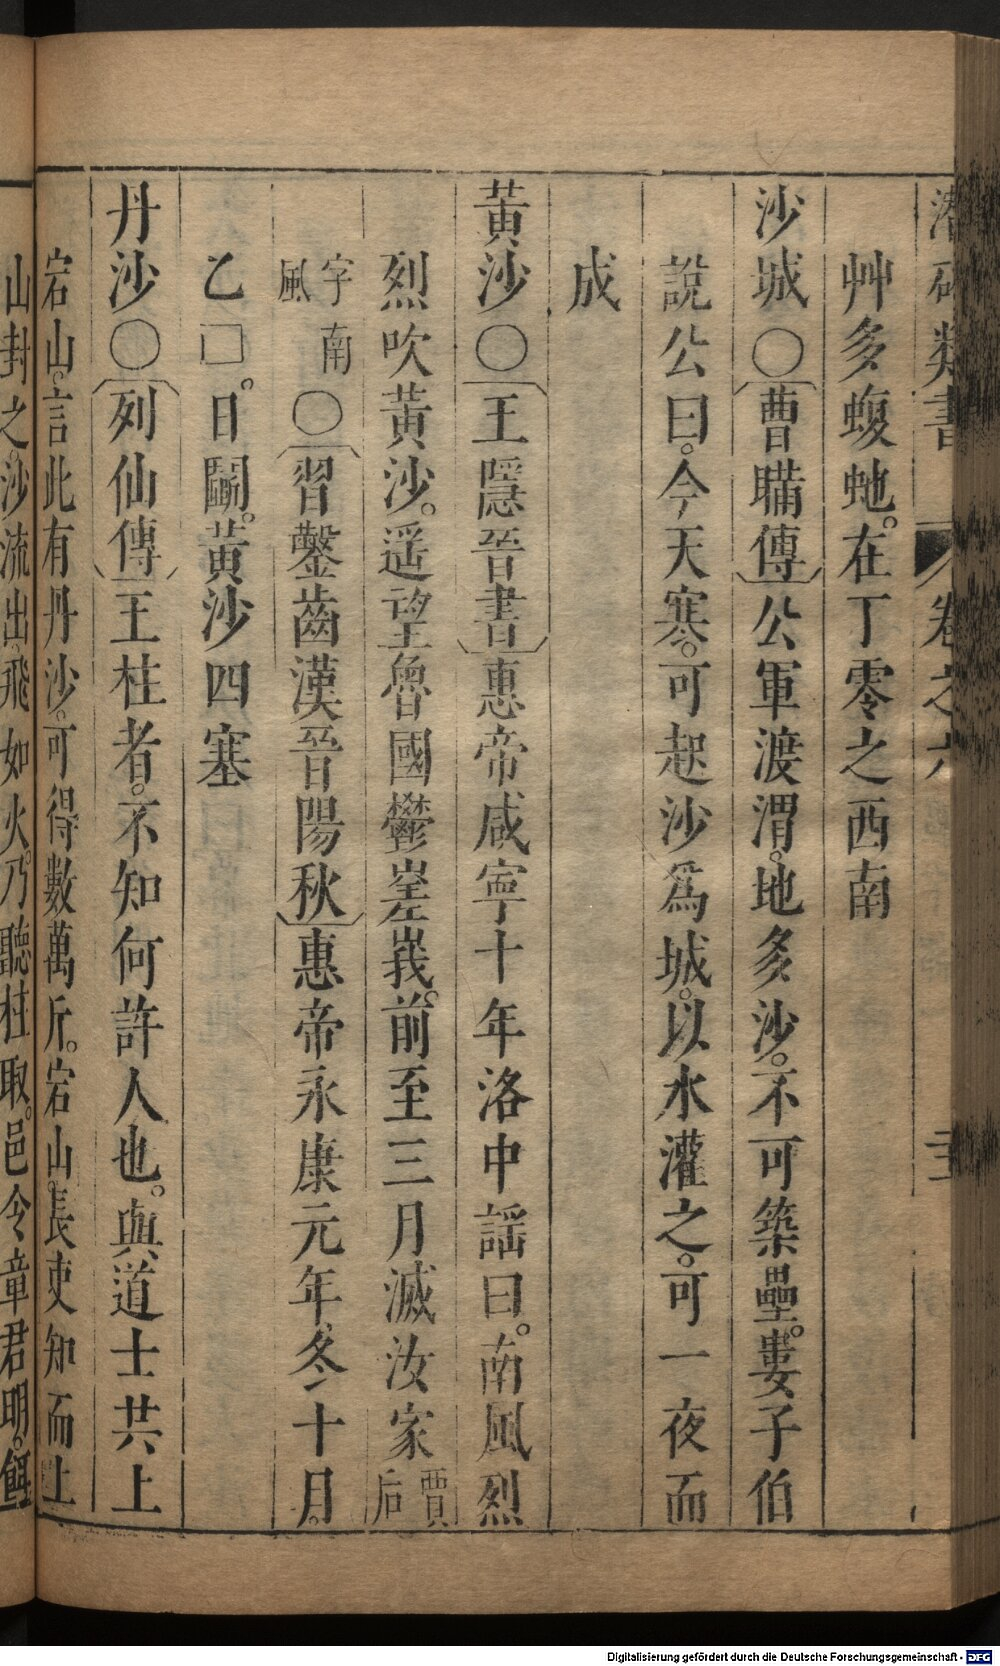 潛確類書 卷之六
艸多蝮虵。在丁零之西南
沙城○曹瞞傳公軍渡渭。地多沙。不可築壘。婁子伯
說公曰。今天寒。可起沙爲城。以水灌之。可一夜而
成
黃沙○王隱晉書惠帝咸寧十年洛中謡曰。南風烈
烈吹黃沙。遥望魯國鬱嵳峩。前至三月滅汝家賈后
字南風○習鑿齒漢晉陽秋惠帝永康元年。冬十月。
乙□。日鬭。黃沙四塞
丹沙○列仙傳王柱者。不知何許人也。與道士共上
宕山。言此有丹沙。可得數萬斤。宕山長吏知而上
山封之。沙流出。飛如火。乃聽柱取。邑令章君明。餌
Digitalisierung gefördert durch die Deutsche Forschungsgemeinschaft - DFG